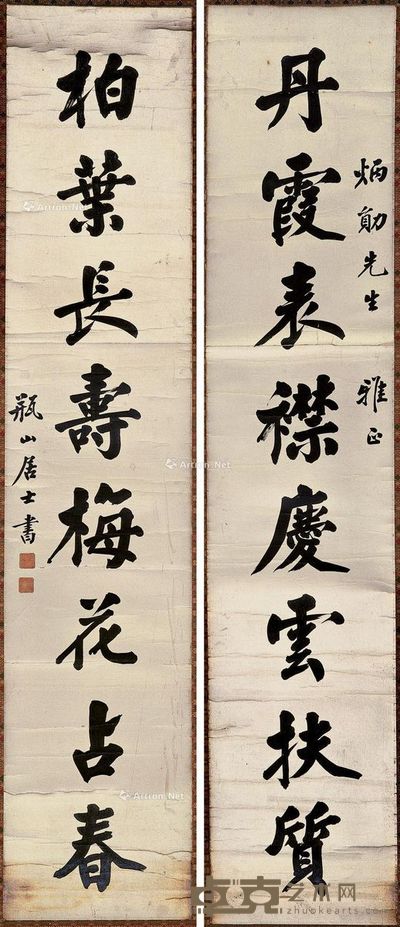 丹霞表襟慶雲扶質
炳勛先生 雅正
柏葉長壽梅花占春
瓶山居士書
Artron.Net
Artron.Net
Artron.Net
Artron.Net
艺术网
zhuokearts.com